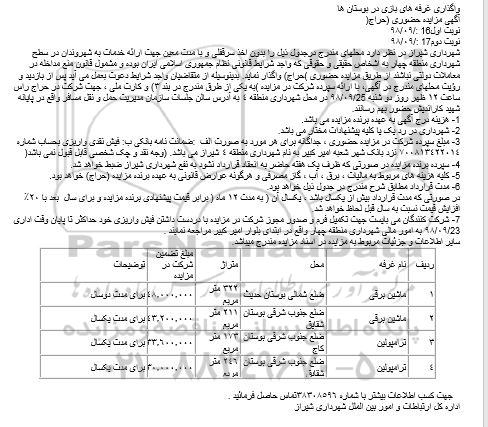 واگذاری غرفه های بازی در بوستان ها
آگهی مزایده حضوری (حراج(
نوبت اول16 :/98/09
نوبت دوم17 :/98/09
شهرداری شیراز در نظر دارد محلهای مندرج درجدول ذیل را بدون اخذ سرقفلی و با مدت معین جهت ارائه خدمات به شهروندان در سطح
شهرداری منطقه چهار به اشخاص حقیقی و حقوقی که واجد شرایط قانونی نظام جمهوری اسلامی ایران بوده و مشمول قانون منع مداخله در
معاملات دولتی نباشند از طریق مزایده حضوری )حراج) واگذار نماید .بدینوسیله از متقاضیان واجد شرایط دعوت بعمل می آید پس از بازدید و
رؤیت محلهای مندرج در آگهی، با ارائه سپرده شرکت در مزایده )به یکی از طرق مندرج در بند 3) و کارت ملی ، جهت شرکت در حراج راس
ساعت 12 ظهر روز دو شنبه 98/09/25 در محل شهرداری منطقه 4 به آدرس سالن جلسات سازمان مدیریت حمل و نقل مسافر واقع در پایانه
شهید کاراندیش حضور بهم رسانند.
1- هزینه درج آگهی به عهده برنده مزایده می باشد.
2- شهرداری در رد یک یا کلیه پیشنهادات مختار می باشد
3- مبلغ سپرده شرکت در مزایده حضوری ، جداگانه برای هر مورد به صورت الف :ضمانت نامه بانکی ب: فیش نقدی واریزی بحساب شماره
700813422014 نزد بانک شهر شعبه امیر کبیر به نام شهرداری منطقه 4 شیراز می باشد. (وجه نقد و چک شخصی قابل قبول نمی باشد(
4- سپرده برنده مزایده در صورتی که ظرف یک هفته حاضر به انعقاد قرارداد نشود به نفع شهرداری شیراز ضبط خواهد شد.
5- کلیه هزینه های مربوط به مالیات ، برق ، آب ، گاز مصرفی و هرگونه عوارض قانونی به عهده برنده مزایده (حراج) خواهد بود.
6- مدت قرارداد مطابق شرح مندرج در جدول ذیل خواهد بود.
در صورتی که مدت قرارداد بیش از یکسال باشد ، یکسال آن ( به مدت 12 ماه ( برابر قیمت پیشنهادی برنده مزایده و برای سال بعد با 20٪
افزایش قیمت نسبت به سال قبل لحاظ خواهد شد
7- شرکت کنندگان می بایست جهت تکمیل فرم و صدور مجوز شرکت در مزایده با دردست داشتن فیش واریزی خود حداکثر تا پایان وقت اداری
98/09/23 به امور مالی شهرداری منطقه چهار واقع در ابتدای بلوار امیر کبیر مراجعه نمایند .
سایر اطلاعات و جزئیات مربوط به مزایده در اسناد مزایده مندرج میباشد.
ردیف نام غرفه محل متراژ مبلغ تضمین شرکت در مزایده توضیحات
1 ماشین برقی ضلع شمالی بوستان حدیث 322 متر مربع 48,000,000 برای مدت دوسال
2 ماشین برقی ضلع جنوب شرقی بوستان شقایق 211 متر مربع 43,200,000 برای مدت یکسال
3 ترامپولین ضلع جنوب شرقی بوستان کاج 173 متر مربع 33,600,000 برای مدت یکسال
4 ترامپولین ضلع جنوب شرقی بوستان شقایق 246 متر مربع 30,000,000 برای مدت یکسال
جهت کسب اطلاعات بیشتر با شماره 38308596تماس حاصل فرمائید .
اداره کل ارتباطات و امور بین الملل شهرداری شیراز